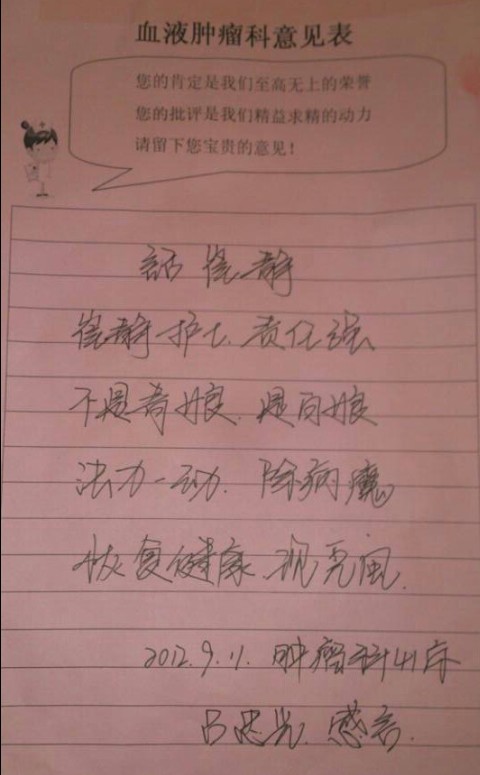 血液肿瘤科意见表
您的肯定是我们至高无上的荣誉
您的批评是我们精益求精的动力
请留下您宝贵的意见!
話 崔静
崔静护士.责任强
不是青娘.是白娘
法力一动.除病魔
恢复健康.观亮风.
2012.9.11.肿瘤科4床
吕忠光.感言.